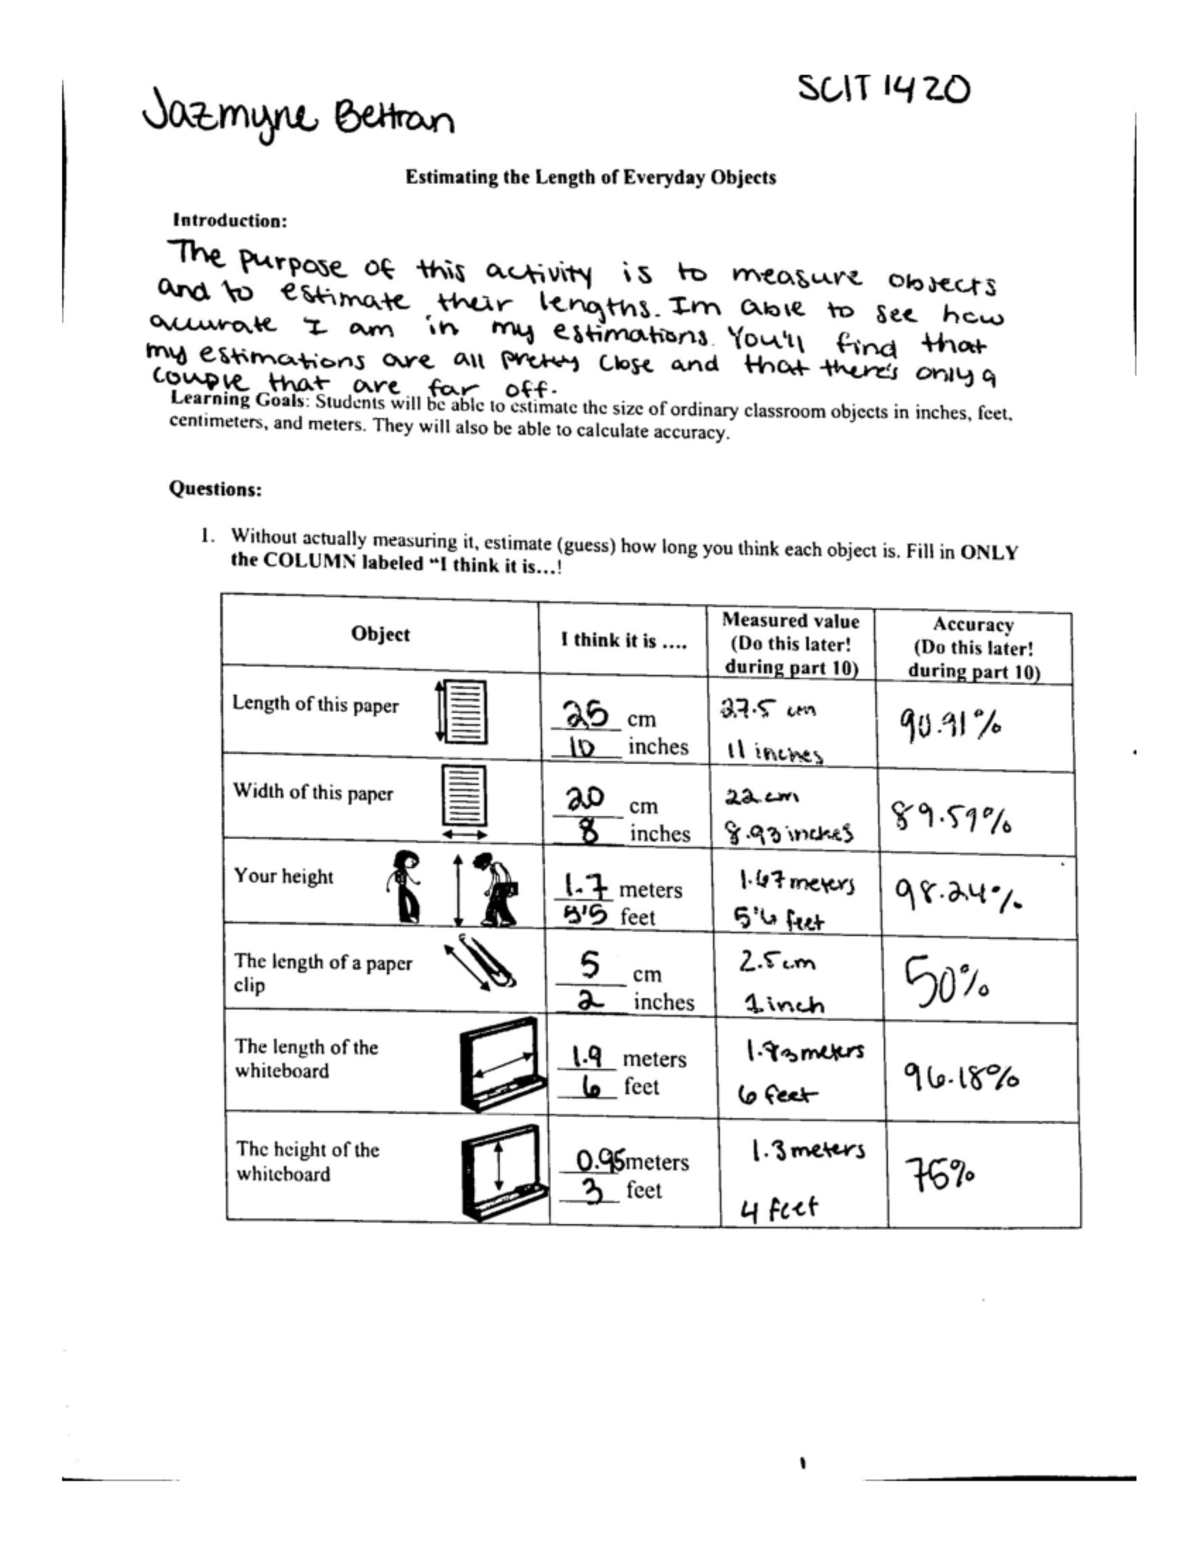 SCIT 1420
Jazmyne Beltran
Estimating the Length of Everyday Objects
Introduction:
The purpose of this activity is to measure objects
and to estimate their lengths. Im able to see how
accurate I am in my estimations. You'll find that
my estimations are all pretty close and that there's only a
couple that are far off.
Learning Goals: Students will be able to estimate the size of ordinary classroom objects in inches, feet,
centimeters, and meters. They will also be able to calculate accuracy.
Questions:
1. Without actually measuring it, estimate (guess) how long you think each object is. Fill in ONLY
the COLUMN labeled “I think it is…!
Object
I think it is ….
Measured value
(Do this later!
during part 10)
Accuracy
(Do this later!
during part 10)
Length of this paper
25 cm
10 inches
27.5 cm
11 inches
90.91%
Width of this paper
20 cm
8 inches
22 cm
8.93 inches
89.59%
Your height
1.7 meters
5'5 feet
1.67 meters
5'6 feet
98.24%
The length of a paper
clip
5 cm
2 inches
2.5 cm
1 inch
50%
The length of the
whiteboard
1.9 meters
6 feet
1.83 meters
6 feet
96.18%
The height of the
whiteboard
0.95 meters
3 feet
1.3 meters
4 feet
75%
1